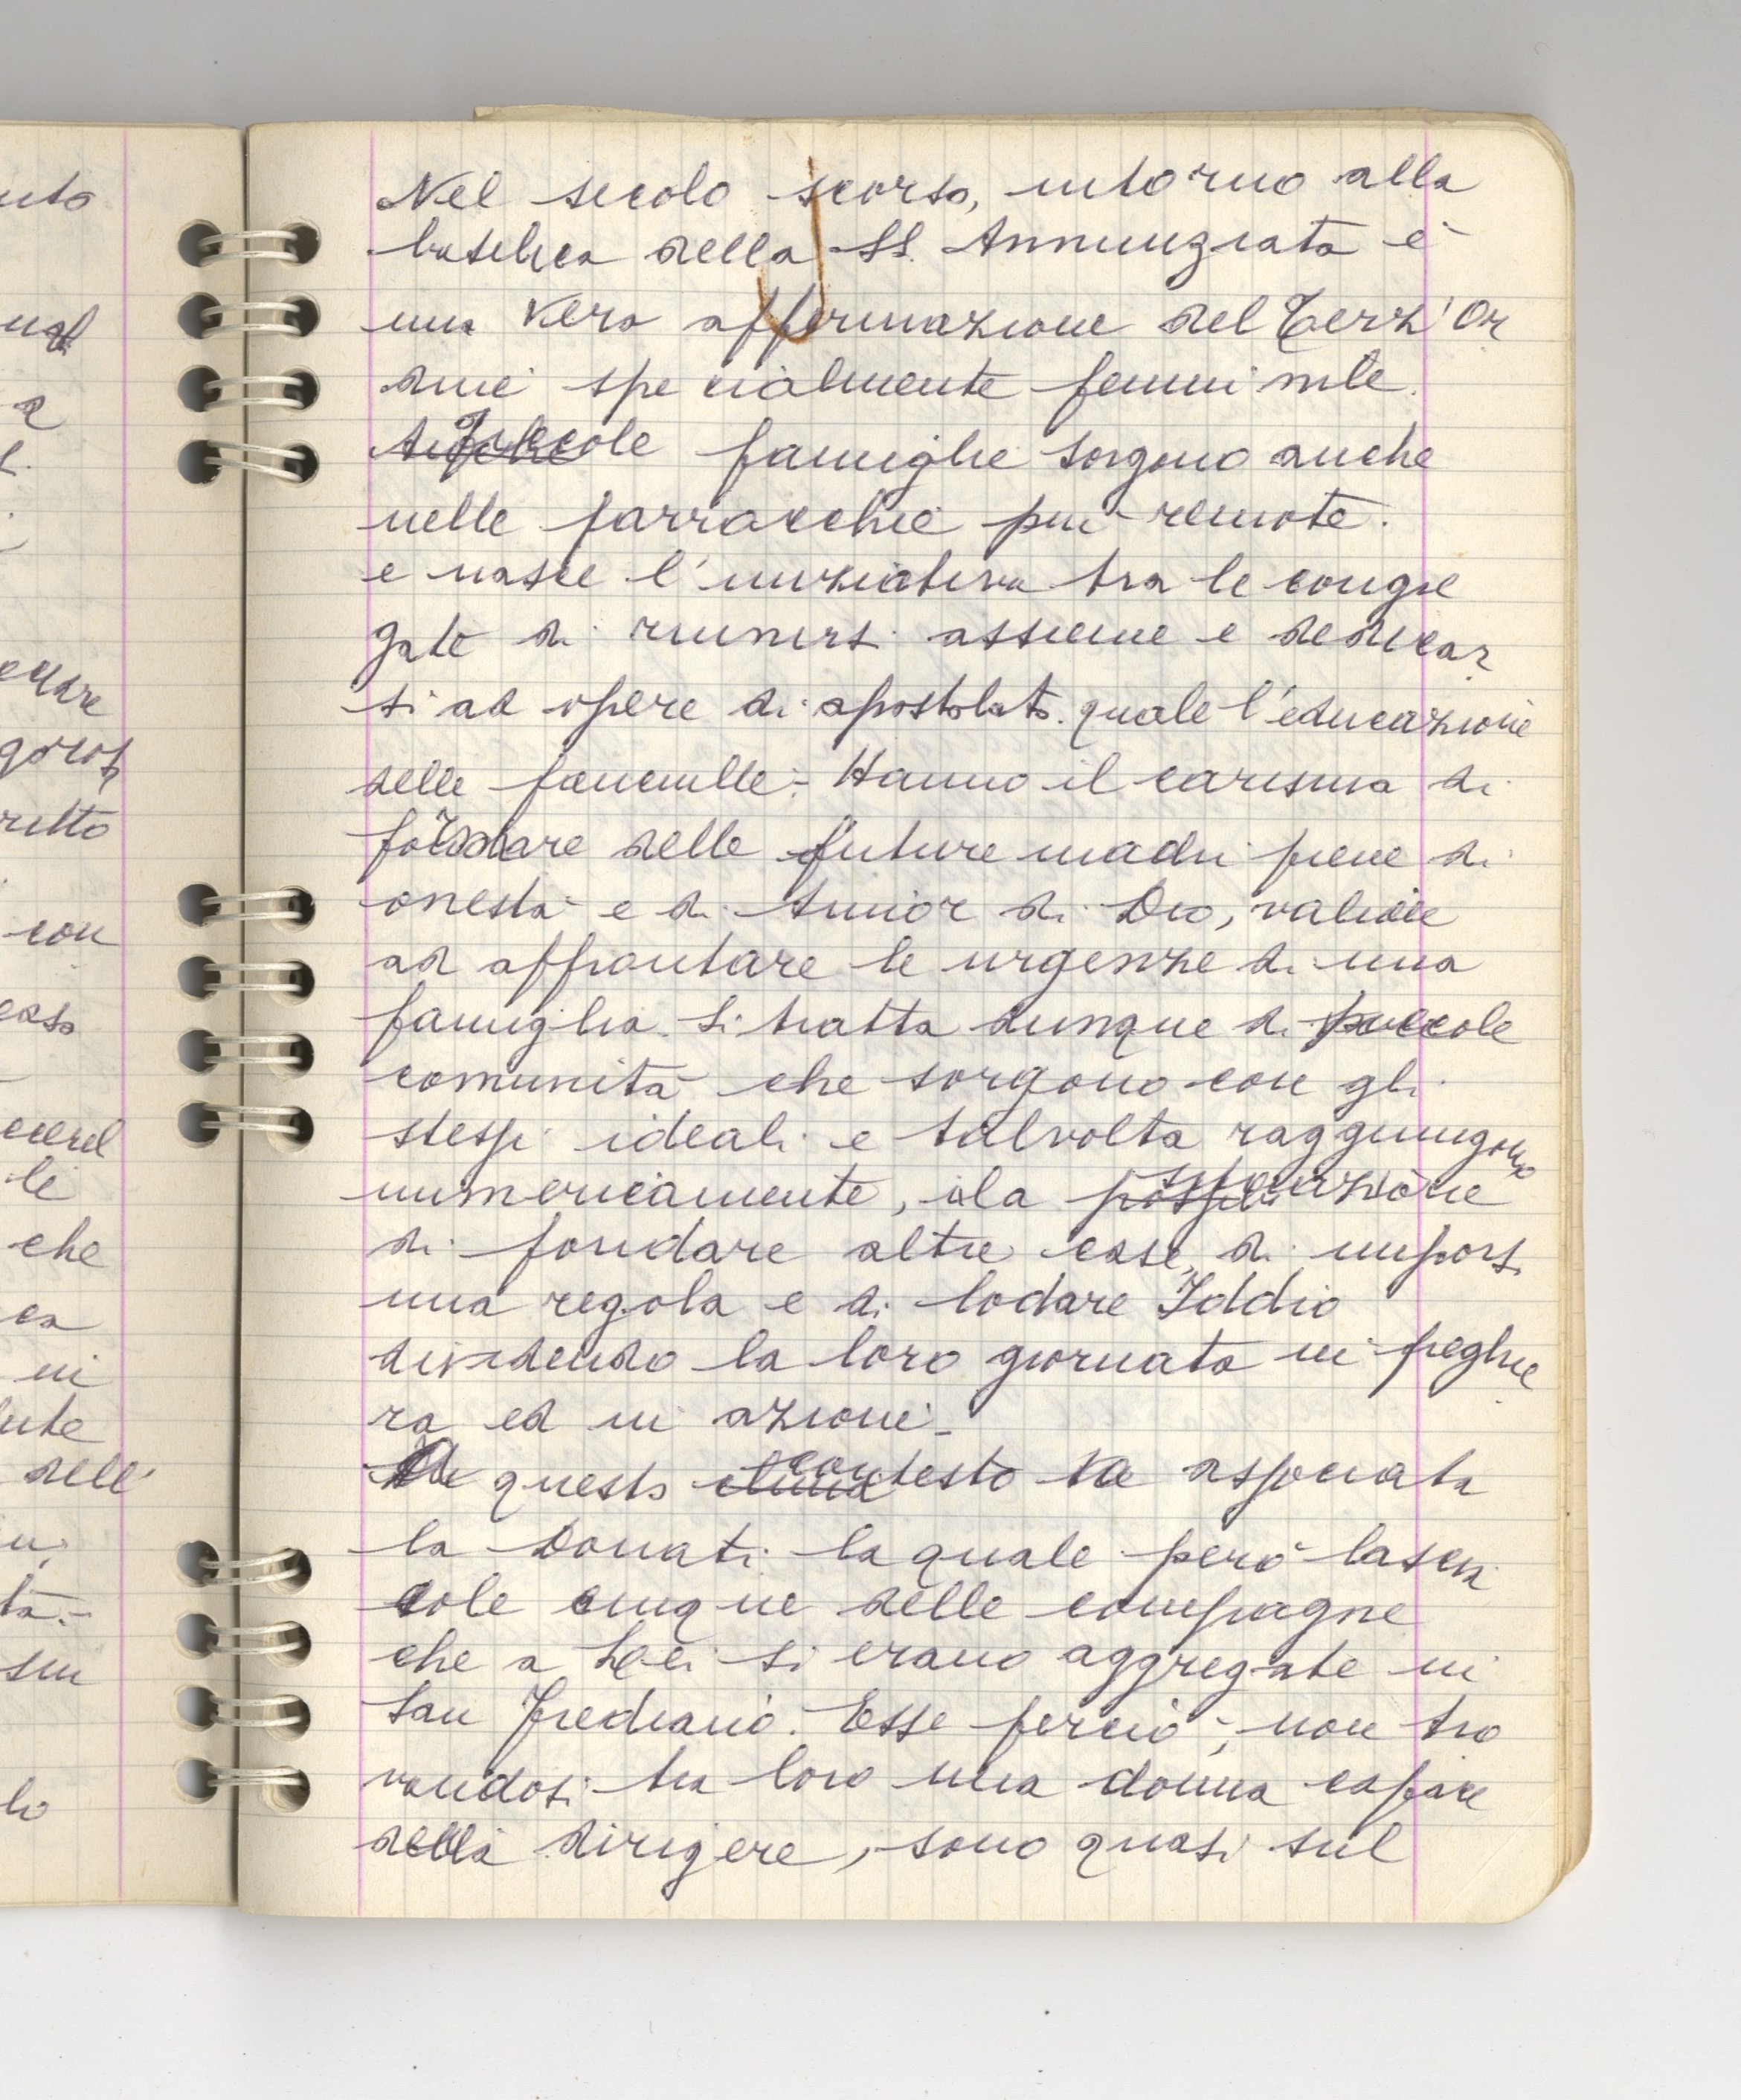 Nel secolo scorso, intorno alla
basilica della SS. Annunziata è
una vera affermazione del Terz'Or
dine specialmente femminile.
Piccole famiglie sorgono anche
nelle parrocchie più remote.
e nasce l'iniziativa tra le congre
gate di riunirsi assieme e dedicar
si ad opere di apostolato quale l'educazione
delle fanciulle. Hanno il carisma di
formare delle future madri piene di
onestà e di timor di Dio, valide
ad affrontare le urgenze di una
famiglia. Si tratta dunque di piccole
comunità che sorgono con gli
stessi ideali e talvolta raggiungono
numericamente, la situazione
di fondare altre case, di imporsi
una regola e di lodare Iddio
dividendo la loro giornata in preghie
ra ed in azione.
A questo contesto va associata
la Donati la quale però lascia
sole cinque delle compagne
che a Lei si erano aggregate in
San Frediano. Esse perciò, non tro
vandosi tra loro una donna capace
della dirigere, sono quasi sul
uto
a
ritto
con
caso
le
che
ca
in
dell'
ta.
lo